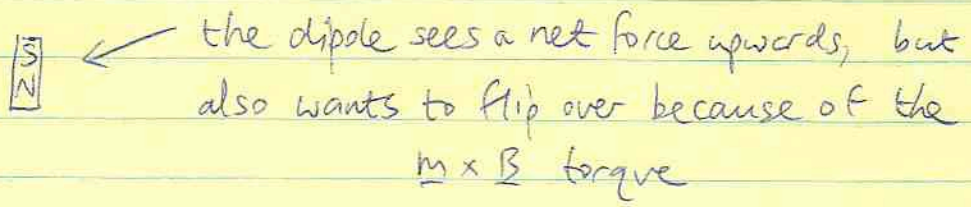 S
N
the dipole sees a net force upwards, but
also wants to flip over because of the
m × B torque